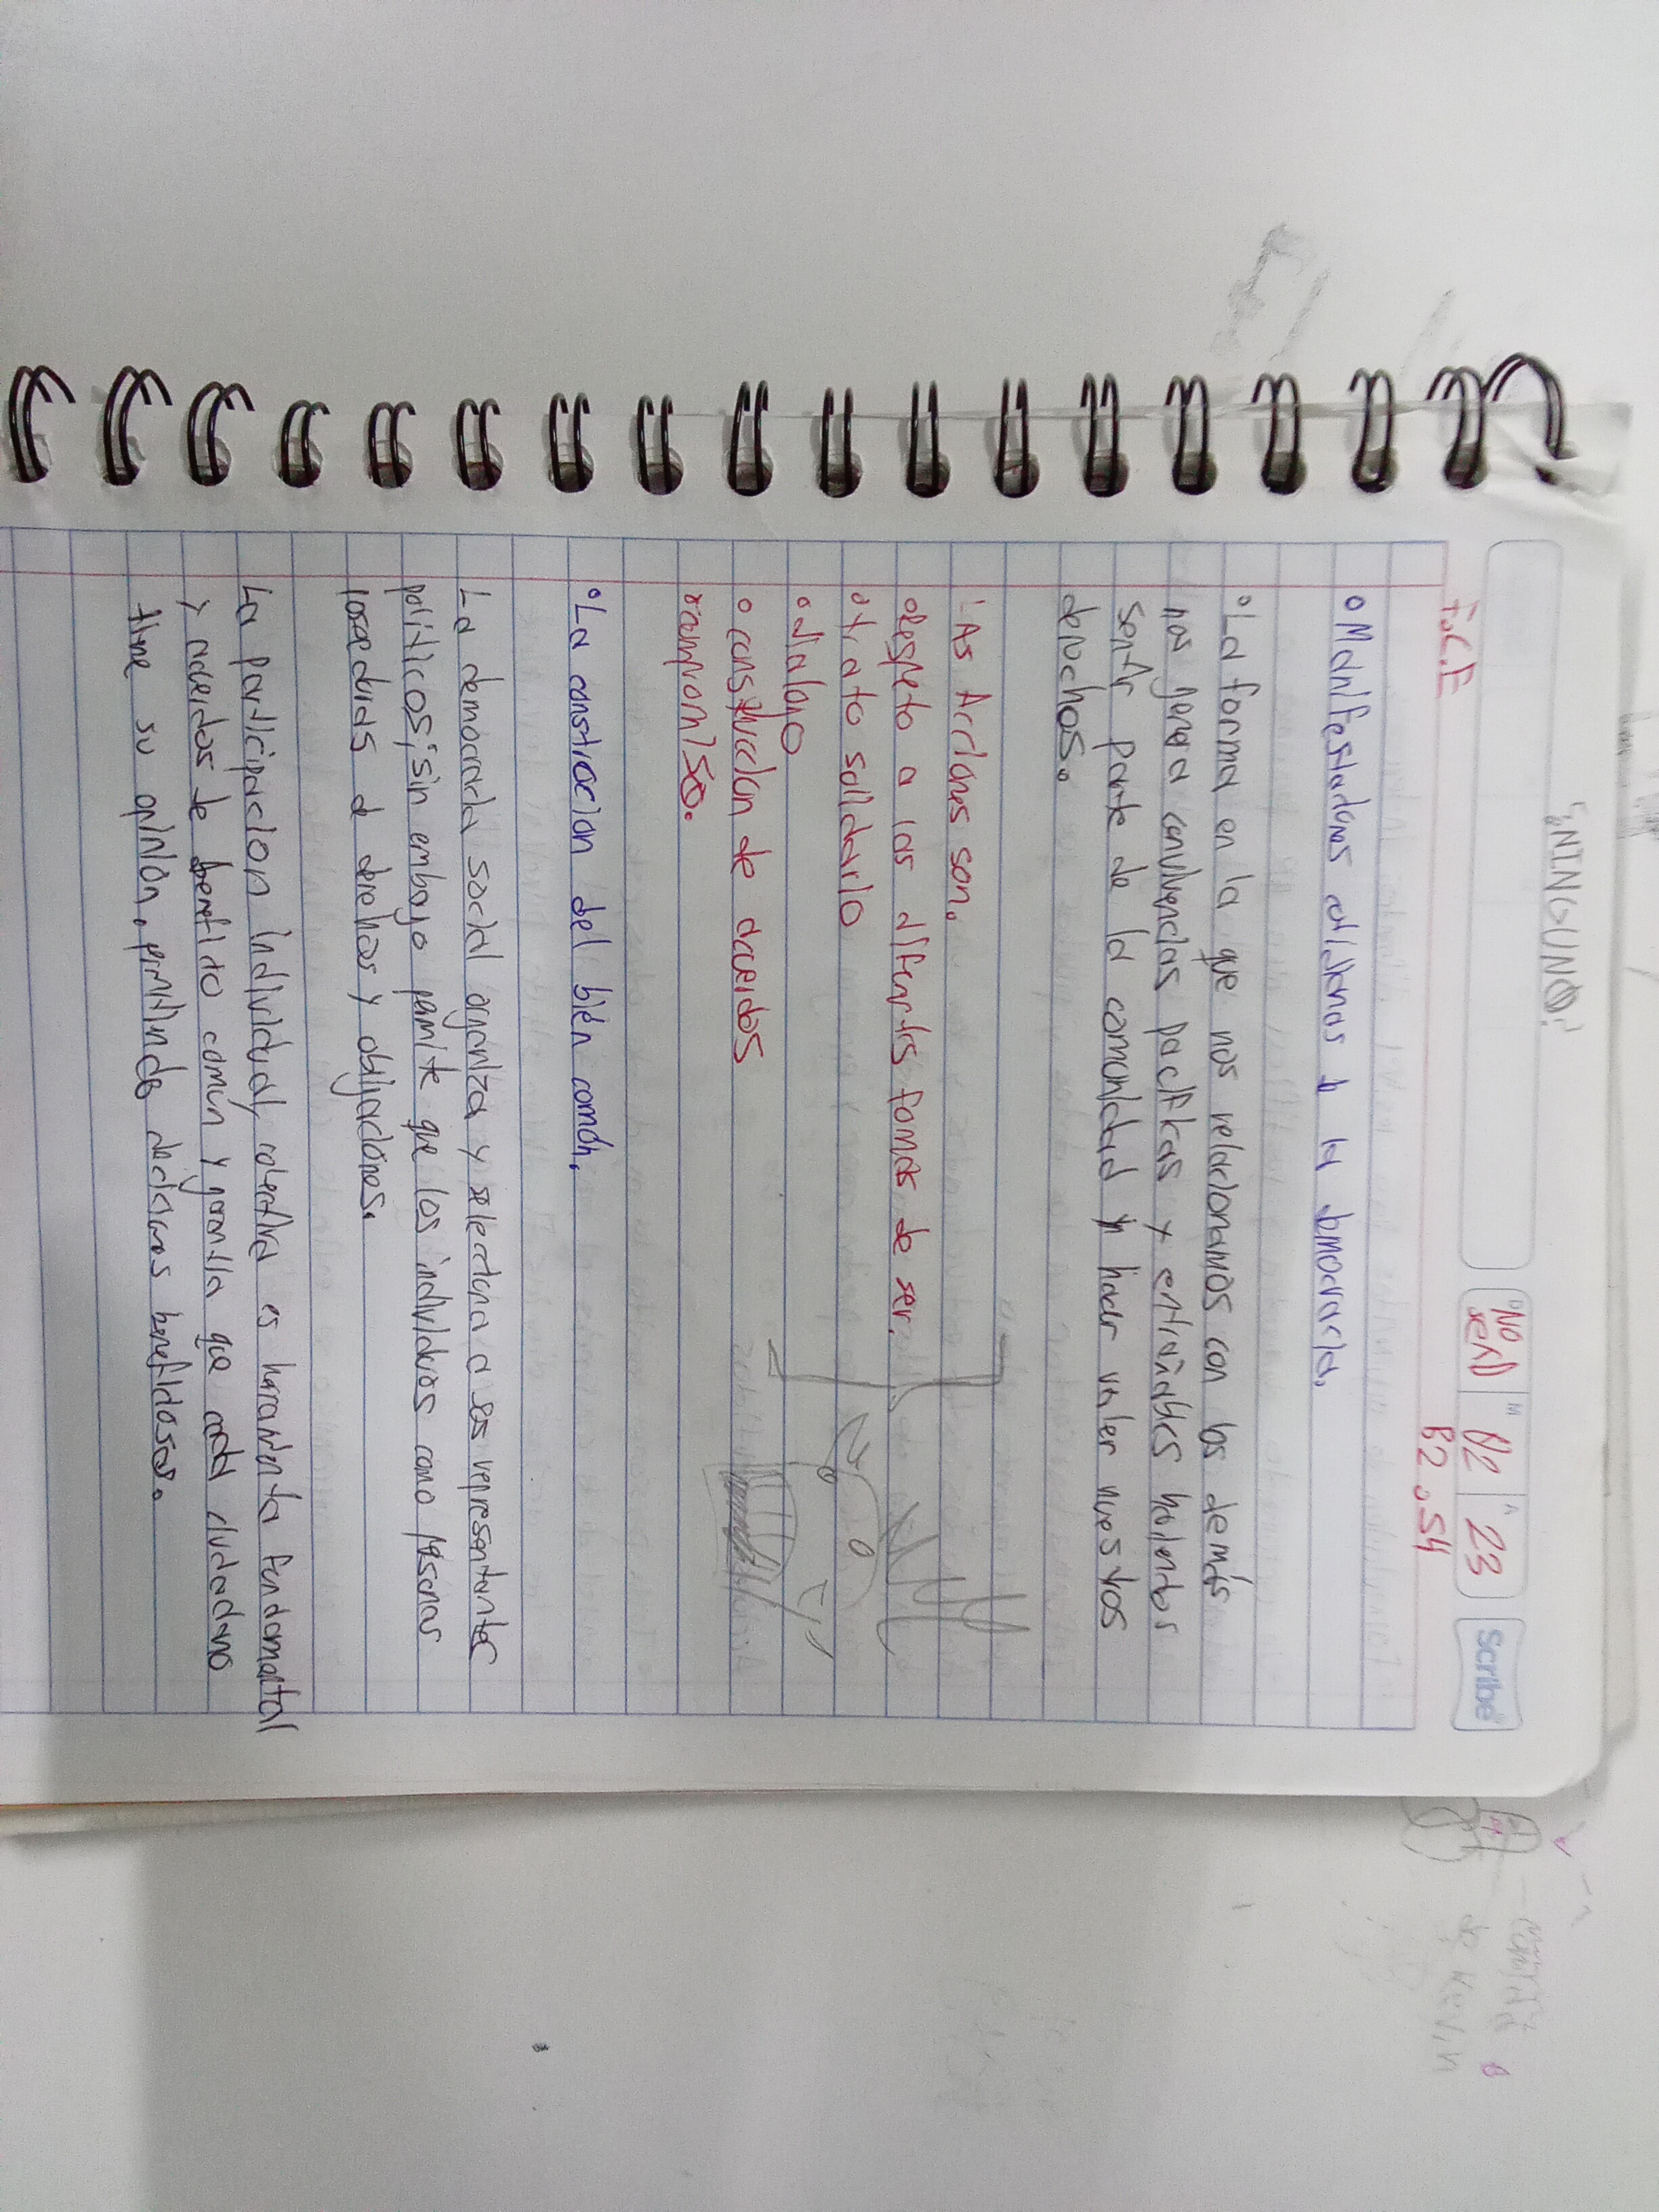 ¿NINGUNO?
D NO SER) M 02 A 23 Scribe
F.C.E B2.S4
° Manifestaciones cotidianas d la democracia.
° La forma en la que nos relacionamos con los demás
nos genera convivencias pacíficas y entrañables haciendos
sentir parte de la comunidad y hacer valer nuestros
derechos.
LAS Acciones son.
°Respeto a las diferentes formas de ser.
°trato solidario
°dialogo
°construccion de acuerdos
°compromiso.
°La construccion del bién común.
La democracia social organiza y selecciona a ses representantes
políticos; sin embajo pamite que los individuos como personas
 a derehos y obligaciónes.
La participacion individual, colectiva es haramienta fundamental
y acerdos de benefito común y garantia que cada ciudadano
tiene su opinión, permitiendo decisiones beneficiosas.